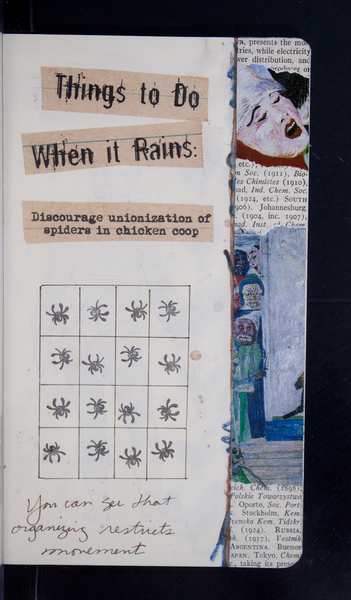 Things to Do
When it Rains:
Discourage unionization of
spiders in chicken coop
You can see that
organizing restricts
movement
va, presents the mo
tries, while electricity
wer distribution, and
producer o
etc.),
m Soc. (1911), Bio-
les Chimistes (1910),
ad, Ind. Chem. Soc.
(1924, etc.) SOUTH
906). Johannesburg
(1904, inc. 1907),
ad. Inst. of Chem.
eich. Chem. (1898),
Polskie Towarzystwo
Oporto, Soc. Port.
Stockholm, Kem.
venska Kem. Tidskr.
(1924). RUSSIA,
h. (1917), Vestnik
ARGENTINA. Buenos
APAN, Tokyo, Chem.
c., taking its prese